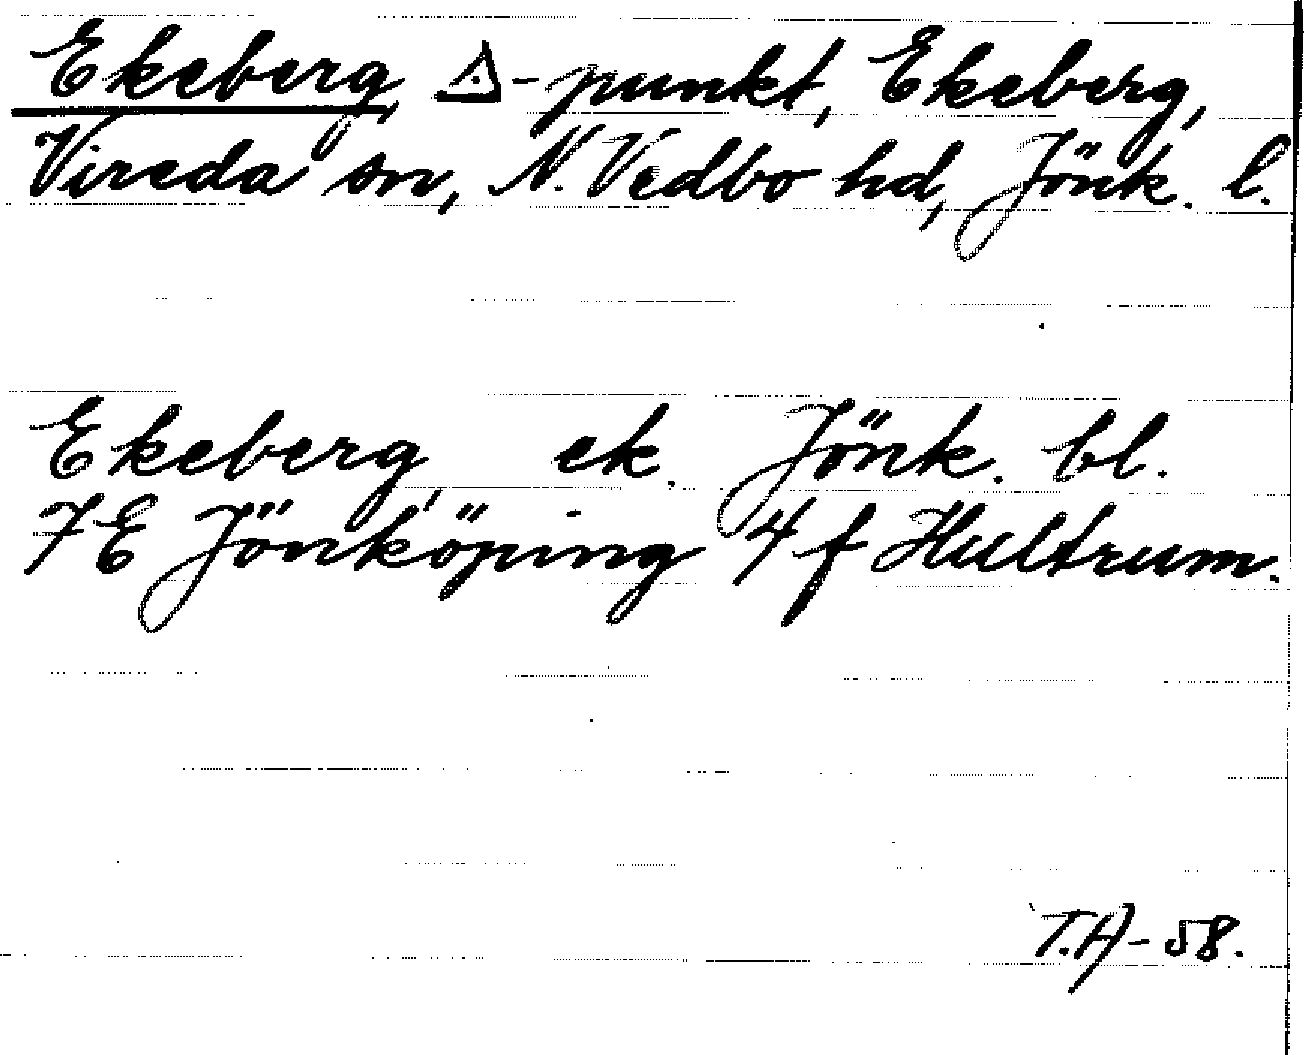 Ekeberg, △-punkt, Ekeberg,
Vireda sn, N. Vedbo hd, Jönk. l.
Ekeberg, ek. Jönk. bl.
7E Jönköping 4f Hultrum.
T.H-58.